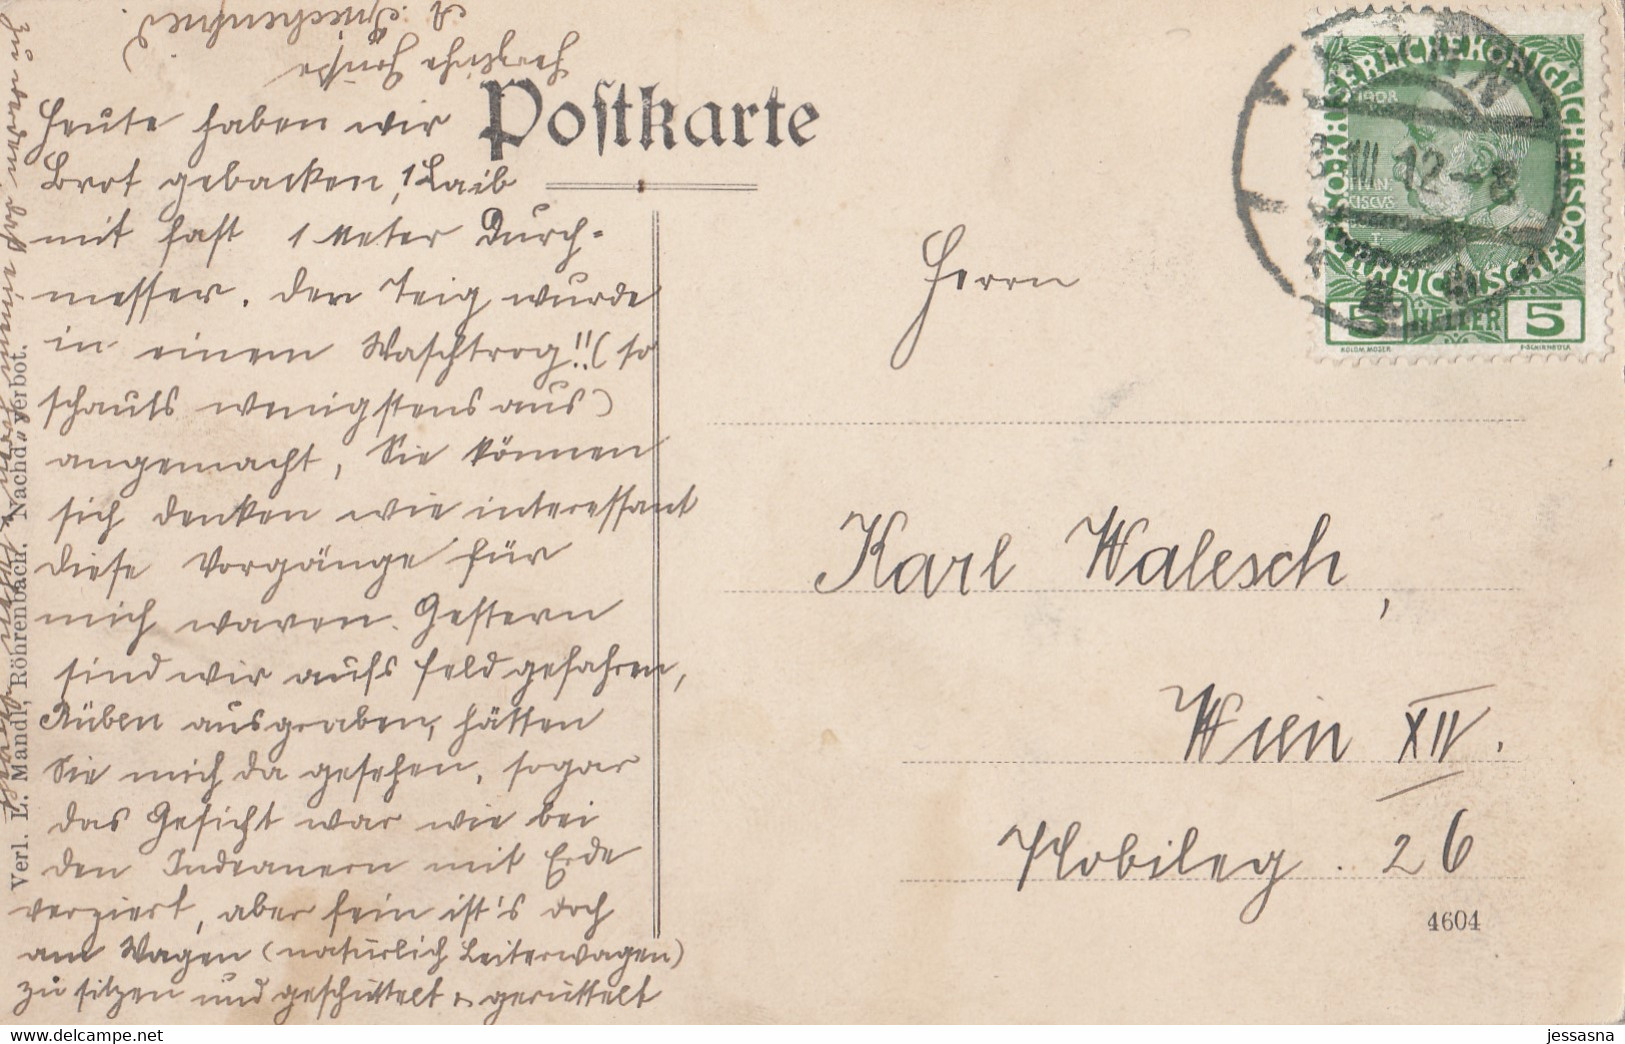 Postkarte
Heute haben wir
Brot gebacken, 1 Laib
mit fast 1 Meter Durch-
messer. Der Teig wurde
in einem Waschtrog!! (so
schauts wenigstens aus)
angemacht, Sie können
sich denken wie interessant
diese Vorgänge für
mich waren. Gestern
sind wir aufs Feld gefahren,
Rüben ausgraben, hätten
Sie mich da gesehen, sogar
das Gesicht war wie bei
den Indeanern mit Erde
verziert, aber fein ist's doch
am Wagen (natürlich Leiterwagen)
zu sitzen und geschüttelt & gerüttelt
zu werden, daß einem
herzliche Grüße
Verl. L. Mandl, Röhrenbach. Nachdr. verbot.
Herrn
Karl Walesch,
Wien XII.
26
4604
KAISERLICHE KÖNIGLICHE ÖSTERREICHISCHE POST
1908
FRAN
CISCVS
I
5 HELLER 5
KOLOM. MOSER
WIEN
12-8
jessasna